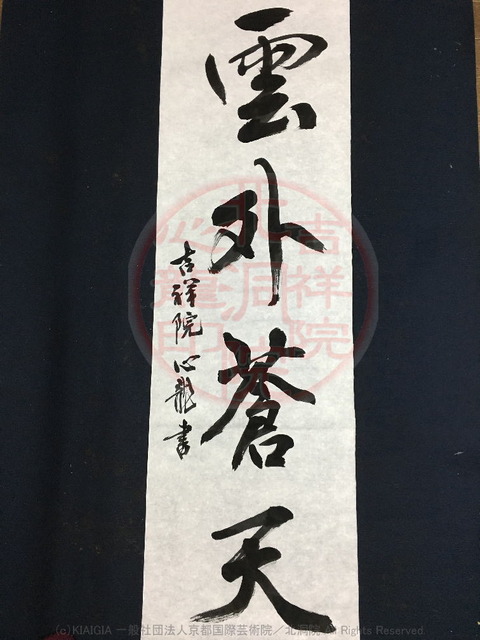 雲外蒼天
吉祥院心龍書
吉祥院
北洞仙
心龍印
(c)KIAIGIA 一般社団法人京都国際芸術院／北洞院 All Rights Reserved.